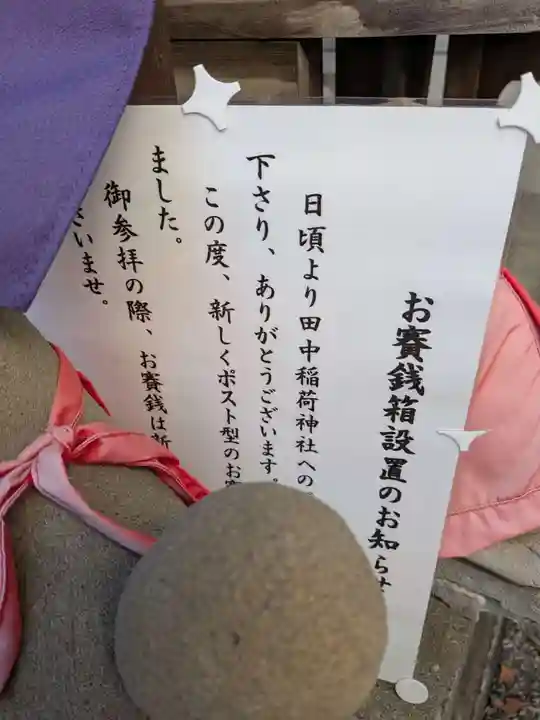 お賽銭箱設置のお知らせ
日頃より田中稲荷神社への
下さり、ありがとうございます。
この度、新しくポスト型のお賽
ました。
御参拝の際、お賽銭は新
さいませ。